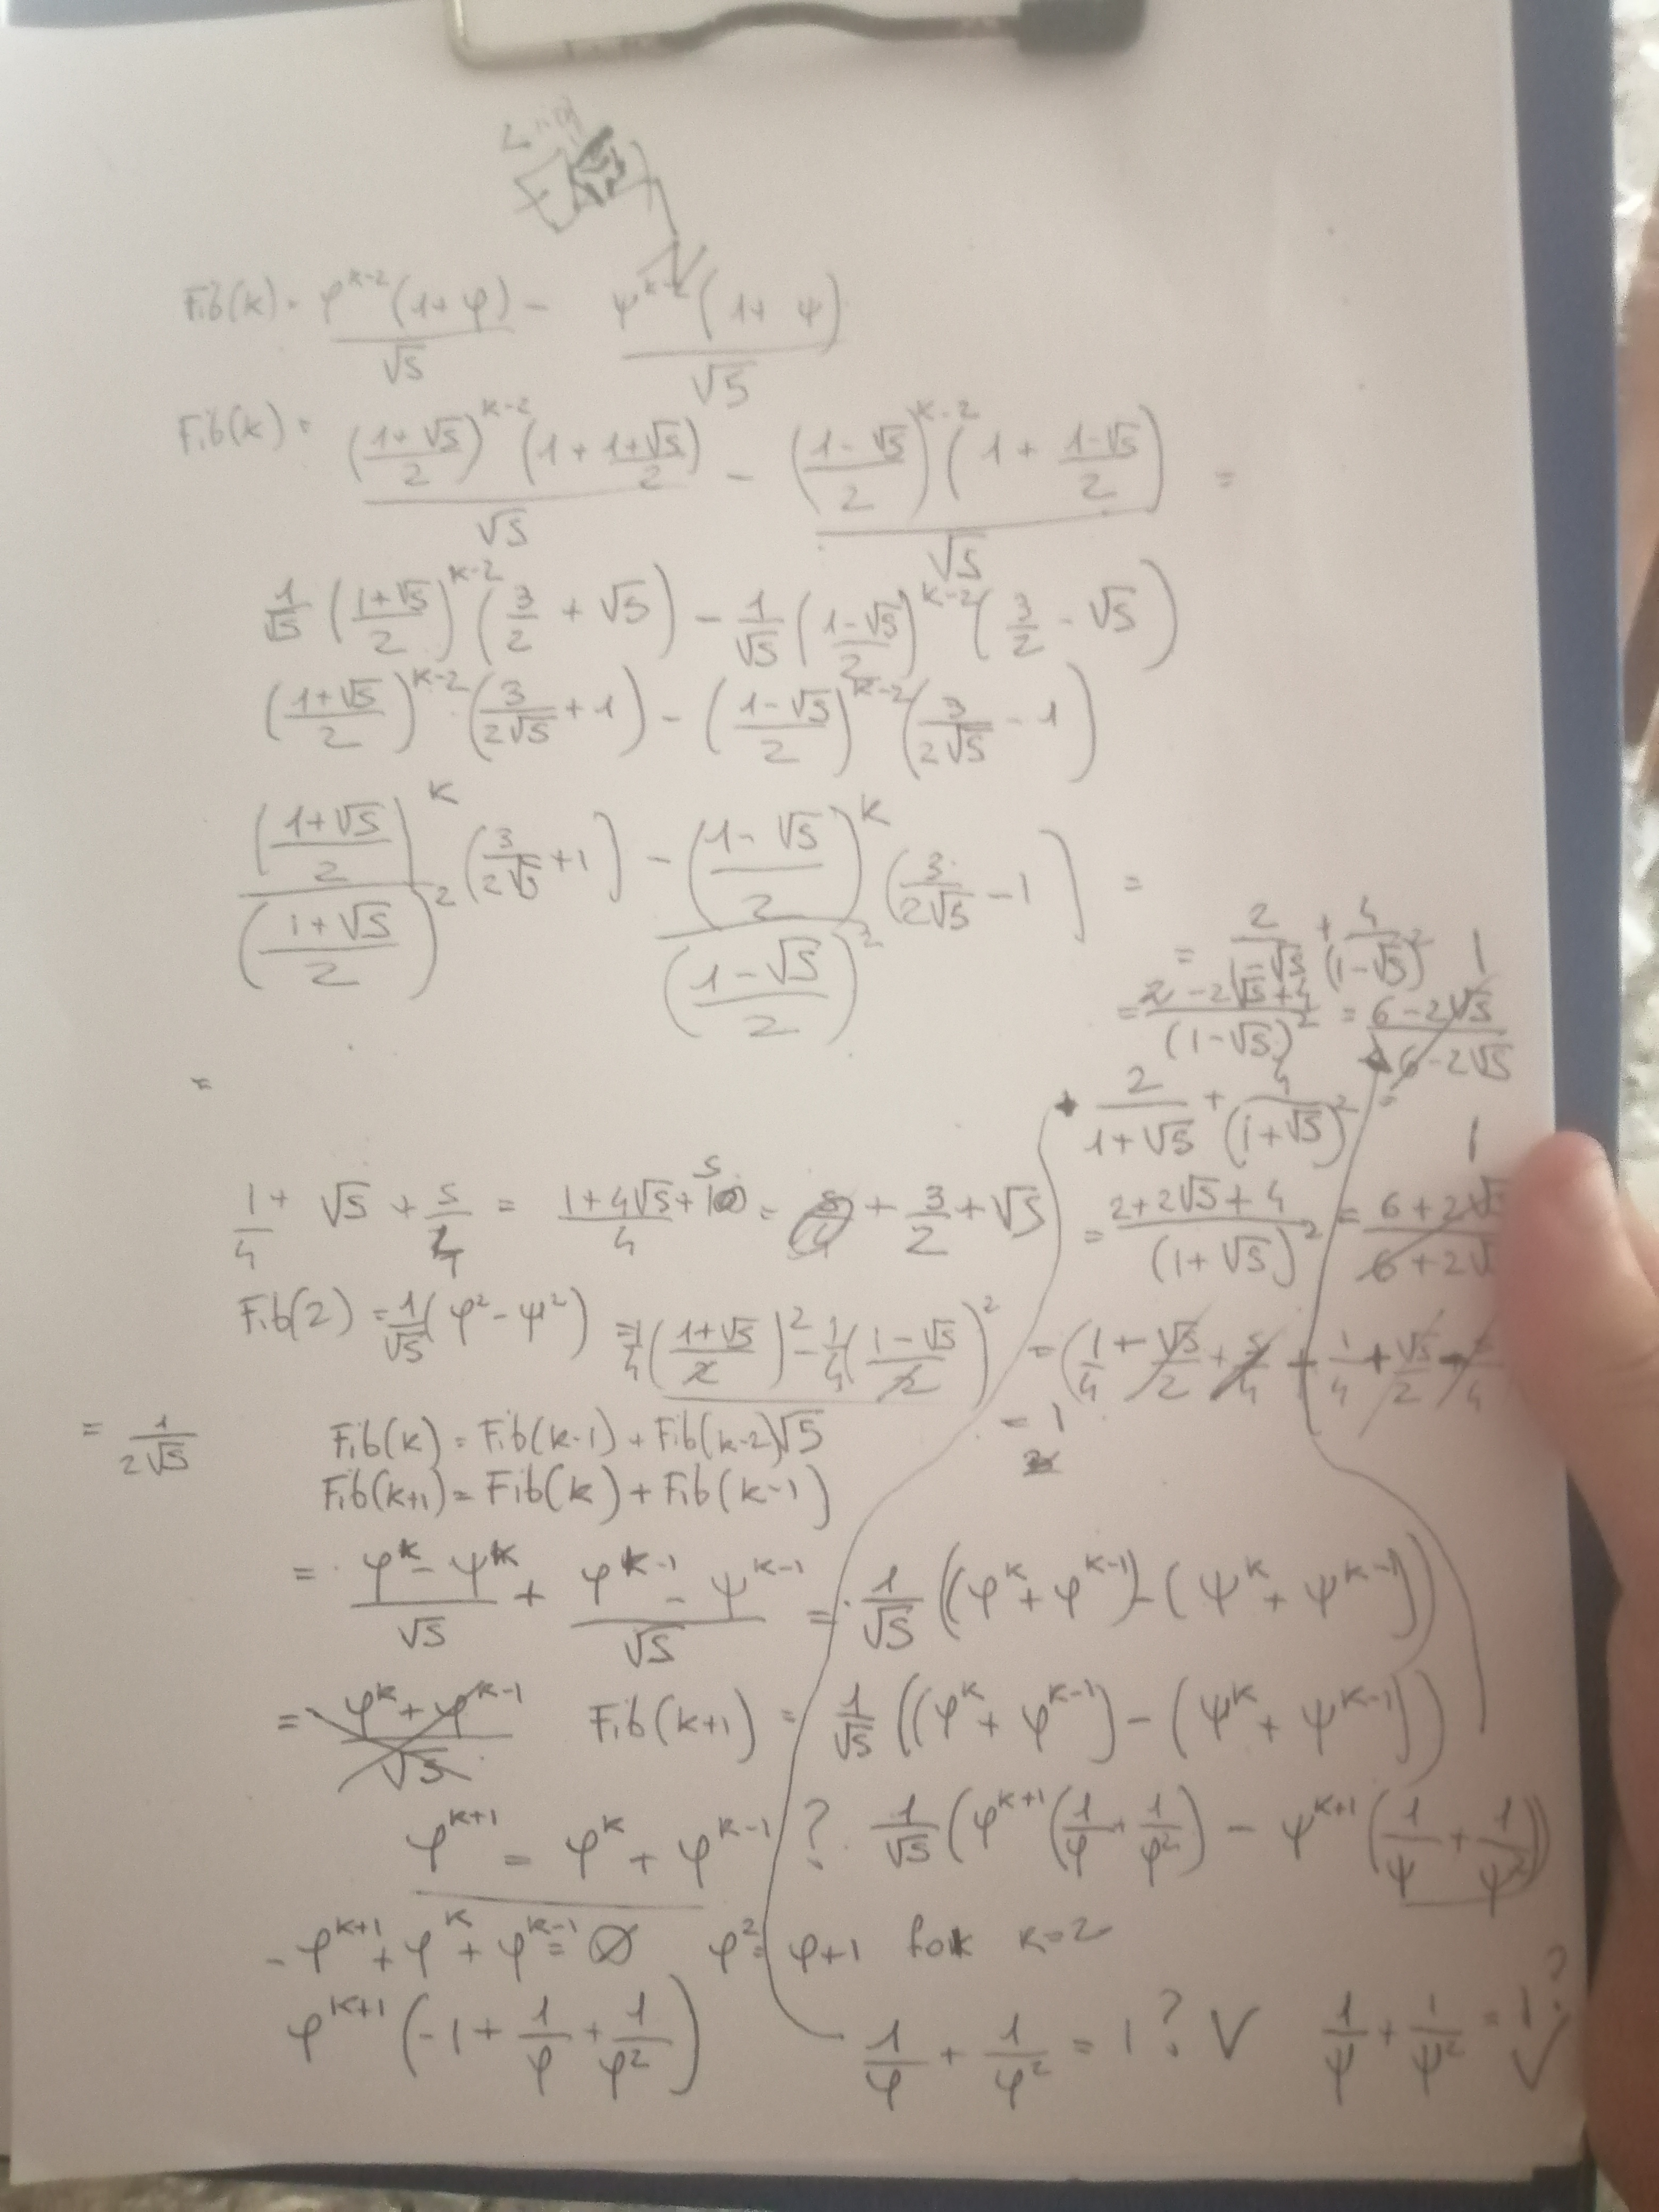 Fib(k) = φ^{k-2}(1+φ)/√5 - ψ^{k-2}(1+ψ)/√5
Fib(k) = ((1+√5)/2)^{k-2} (1 + (1+√5)/2)/√5 - ((1-√5)/2)^{k-2} (1 + (1-√5)/2)/√5 =
1/√5 ((1+√5)/2)^{k-2} (3/2 + √5) - 1/√5 ((1-√5)/2)^{k-2} (3/2 - √5)
((1+√5)/2)^{k-2} (3/(2√5) + 1) - ((1-√5)/2)^{k-2} (3/(2√5) - 1)
((1+√5)/2)^k / ((1+√5)/2)^2 (3/(2√5) + 1) - ((1-√5)/2)^k / ((1-√5)/2)^2 (3/(2√5) - 1) =
= 2/(1-√5) + 4/(1-√5)^2
= (2-2√5+4)/(1-√5)^2 = (6-2√5)/(6-2√5) 1
=
2/(1+√5) + 4/(1+√5)^2 =
= (2+2√5+4)/(1+√5)^2 = (6+2√5)/(6+2√ 1
1/4 + √5 + 5/4 = (1+4√5+5)/4 = + 3/2 + √5
Fib(2) = 1/√5 (φ^2 - ψ^2) = 1/4 ((1+√5)/2)^2 - 1/4 ((1-√5)/2)^2 = (1/4 + √5/2 + 5/4 + 1/4 + √5/2 - 5/4
√5
= 1
= 1/(2√5)
Fib(k) = Fib(k-1) + Fib(k-2)
Fib(k+1) = Fib(k) + Fib(k-1)
= (φ^k - ψ^k)/√5 + (φ^{k-1} - ψ^{k-1})/√5 = 1/√5 ((φ^k + φ^{k-1}) - (ψ^k + ψ^{k-1}))
= (φ^k + φ^{k-1})/√5 Fib(k+1) = 1/√5 ((φ^k + φ^{k-1}) - (ψ^k + ψ^{k-1}))
φ^{k+1} = φ^k + φ^{k-1} ? 1/√5 (φ^{k+1} (1/φ + 1/φ^2) - ψ^{k+1} (1/ψ + 1/ψ^2))
-φ^{k+1} + φ^k + φ^{k-1} = Ø φ^2 = φ+1 for k=2
φ^{k+1} (-1 + 1/φ + 1/φ^2) 1/φ + 1/φ^2 = 1 ? V 1/ψ + 1/ψ^2 = 1 ? V